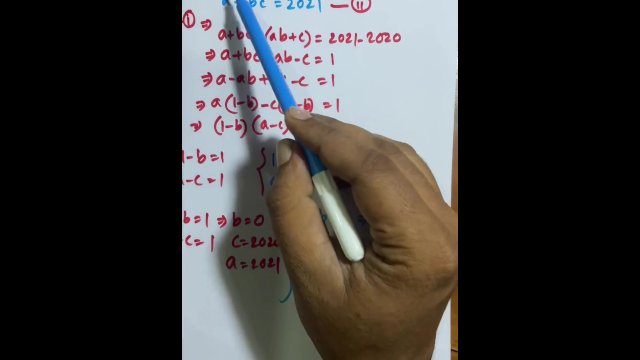 bc = 2021 — (II)
(I) ⇒
a+bc (ab+c) = 2021-2020
⇒ a+bc ab-c = 1
⇒ a-ab+ -c = 1
⇒ a(1-b)-c( -b) = 1
⇒ (1-b)(a-c)
1-b=1
-c=1
b=1 ⇒ b=0
c=1 c=2020
a=2021